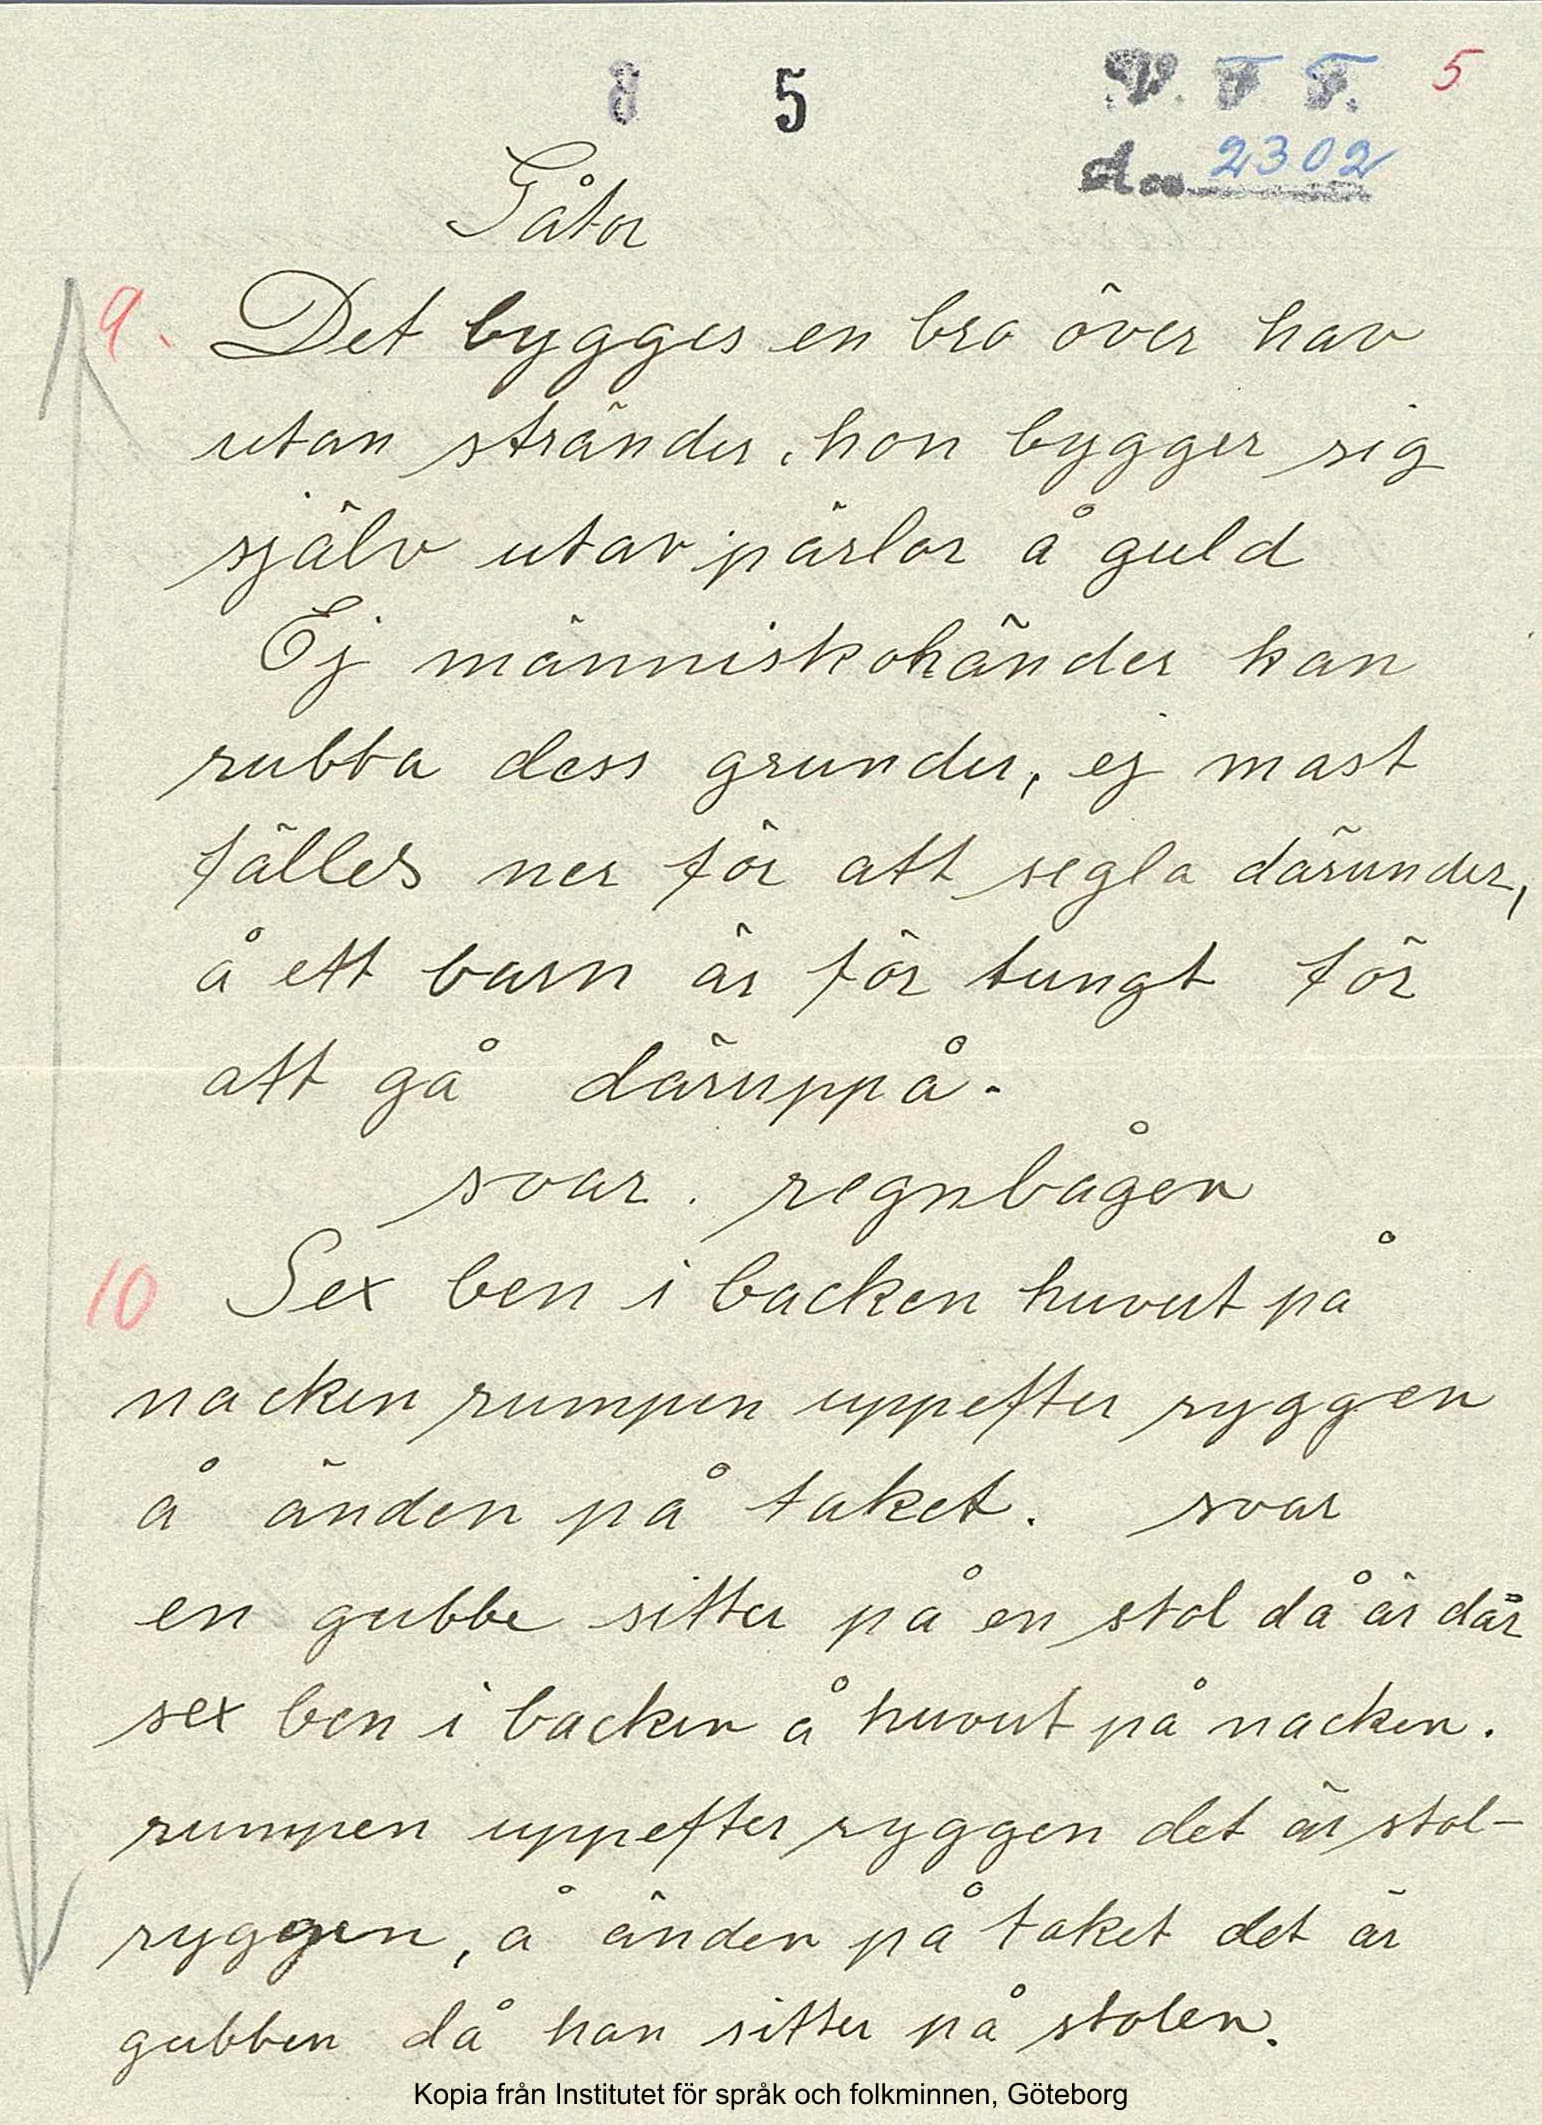 8 5 V. F. F. 5
d.. 2302
Gåtor
9. Det bygges en bro över hav
utan stränder, hon bygger sig
själv utav pärlor å guld
Ej människohänder kan
rubba dess grunder, ej mast
fälles ner för att segla därunder,
å ett barn är för tungt för
att gå däruppå.
svar. regnbågen
10 Sex ben i backen huvut på
nacken rumpen uppefter ryggen
å änden på taket. svar
en gubbe sitter på en stol då är där
sex ben i backen å huvut på nacken.
rumpen uppefter ryggen det är stol-
ryggen, å änden på taket det är
gubben då han sitter på stolen.
Kopia från Institutet för språk och folkminnen, Göteborg